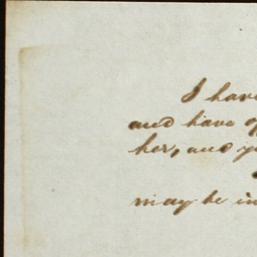 I hav
and have o
her, and y
may be in